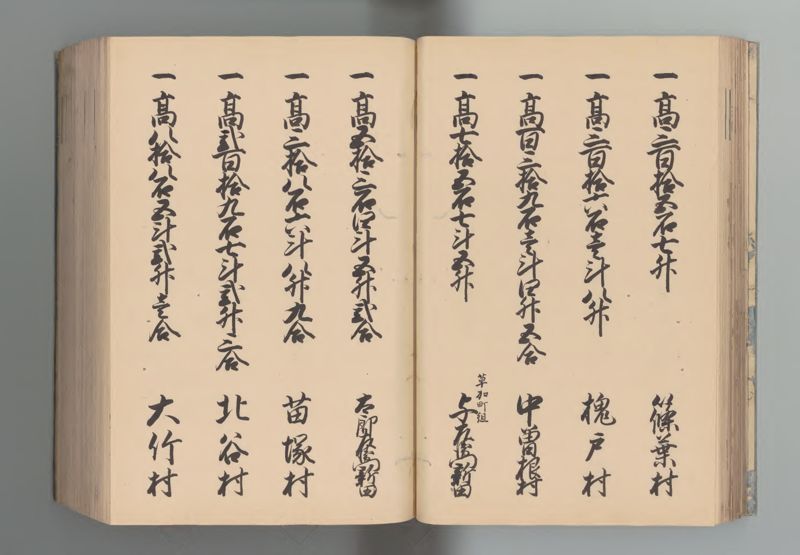 一高三百拾五石七升 篠葉村
一高三百拾六石壱斗八升 槐戸村
一高百三拾九石壱斗四升五合 中曽根村
一高七拾五石七斗五升 草加町組 与左衛門新田
一高五拾三石四斗五升弐合 太郎左衛門新田
一高三拾八石六斗八升九合 苗塚村
一高弐百拾九石七斗弐升三合 北谷村
一高八拾八石五斗弐升壱合 大竹村